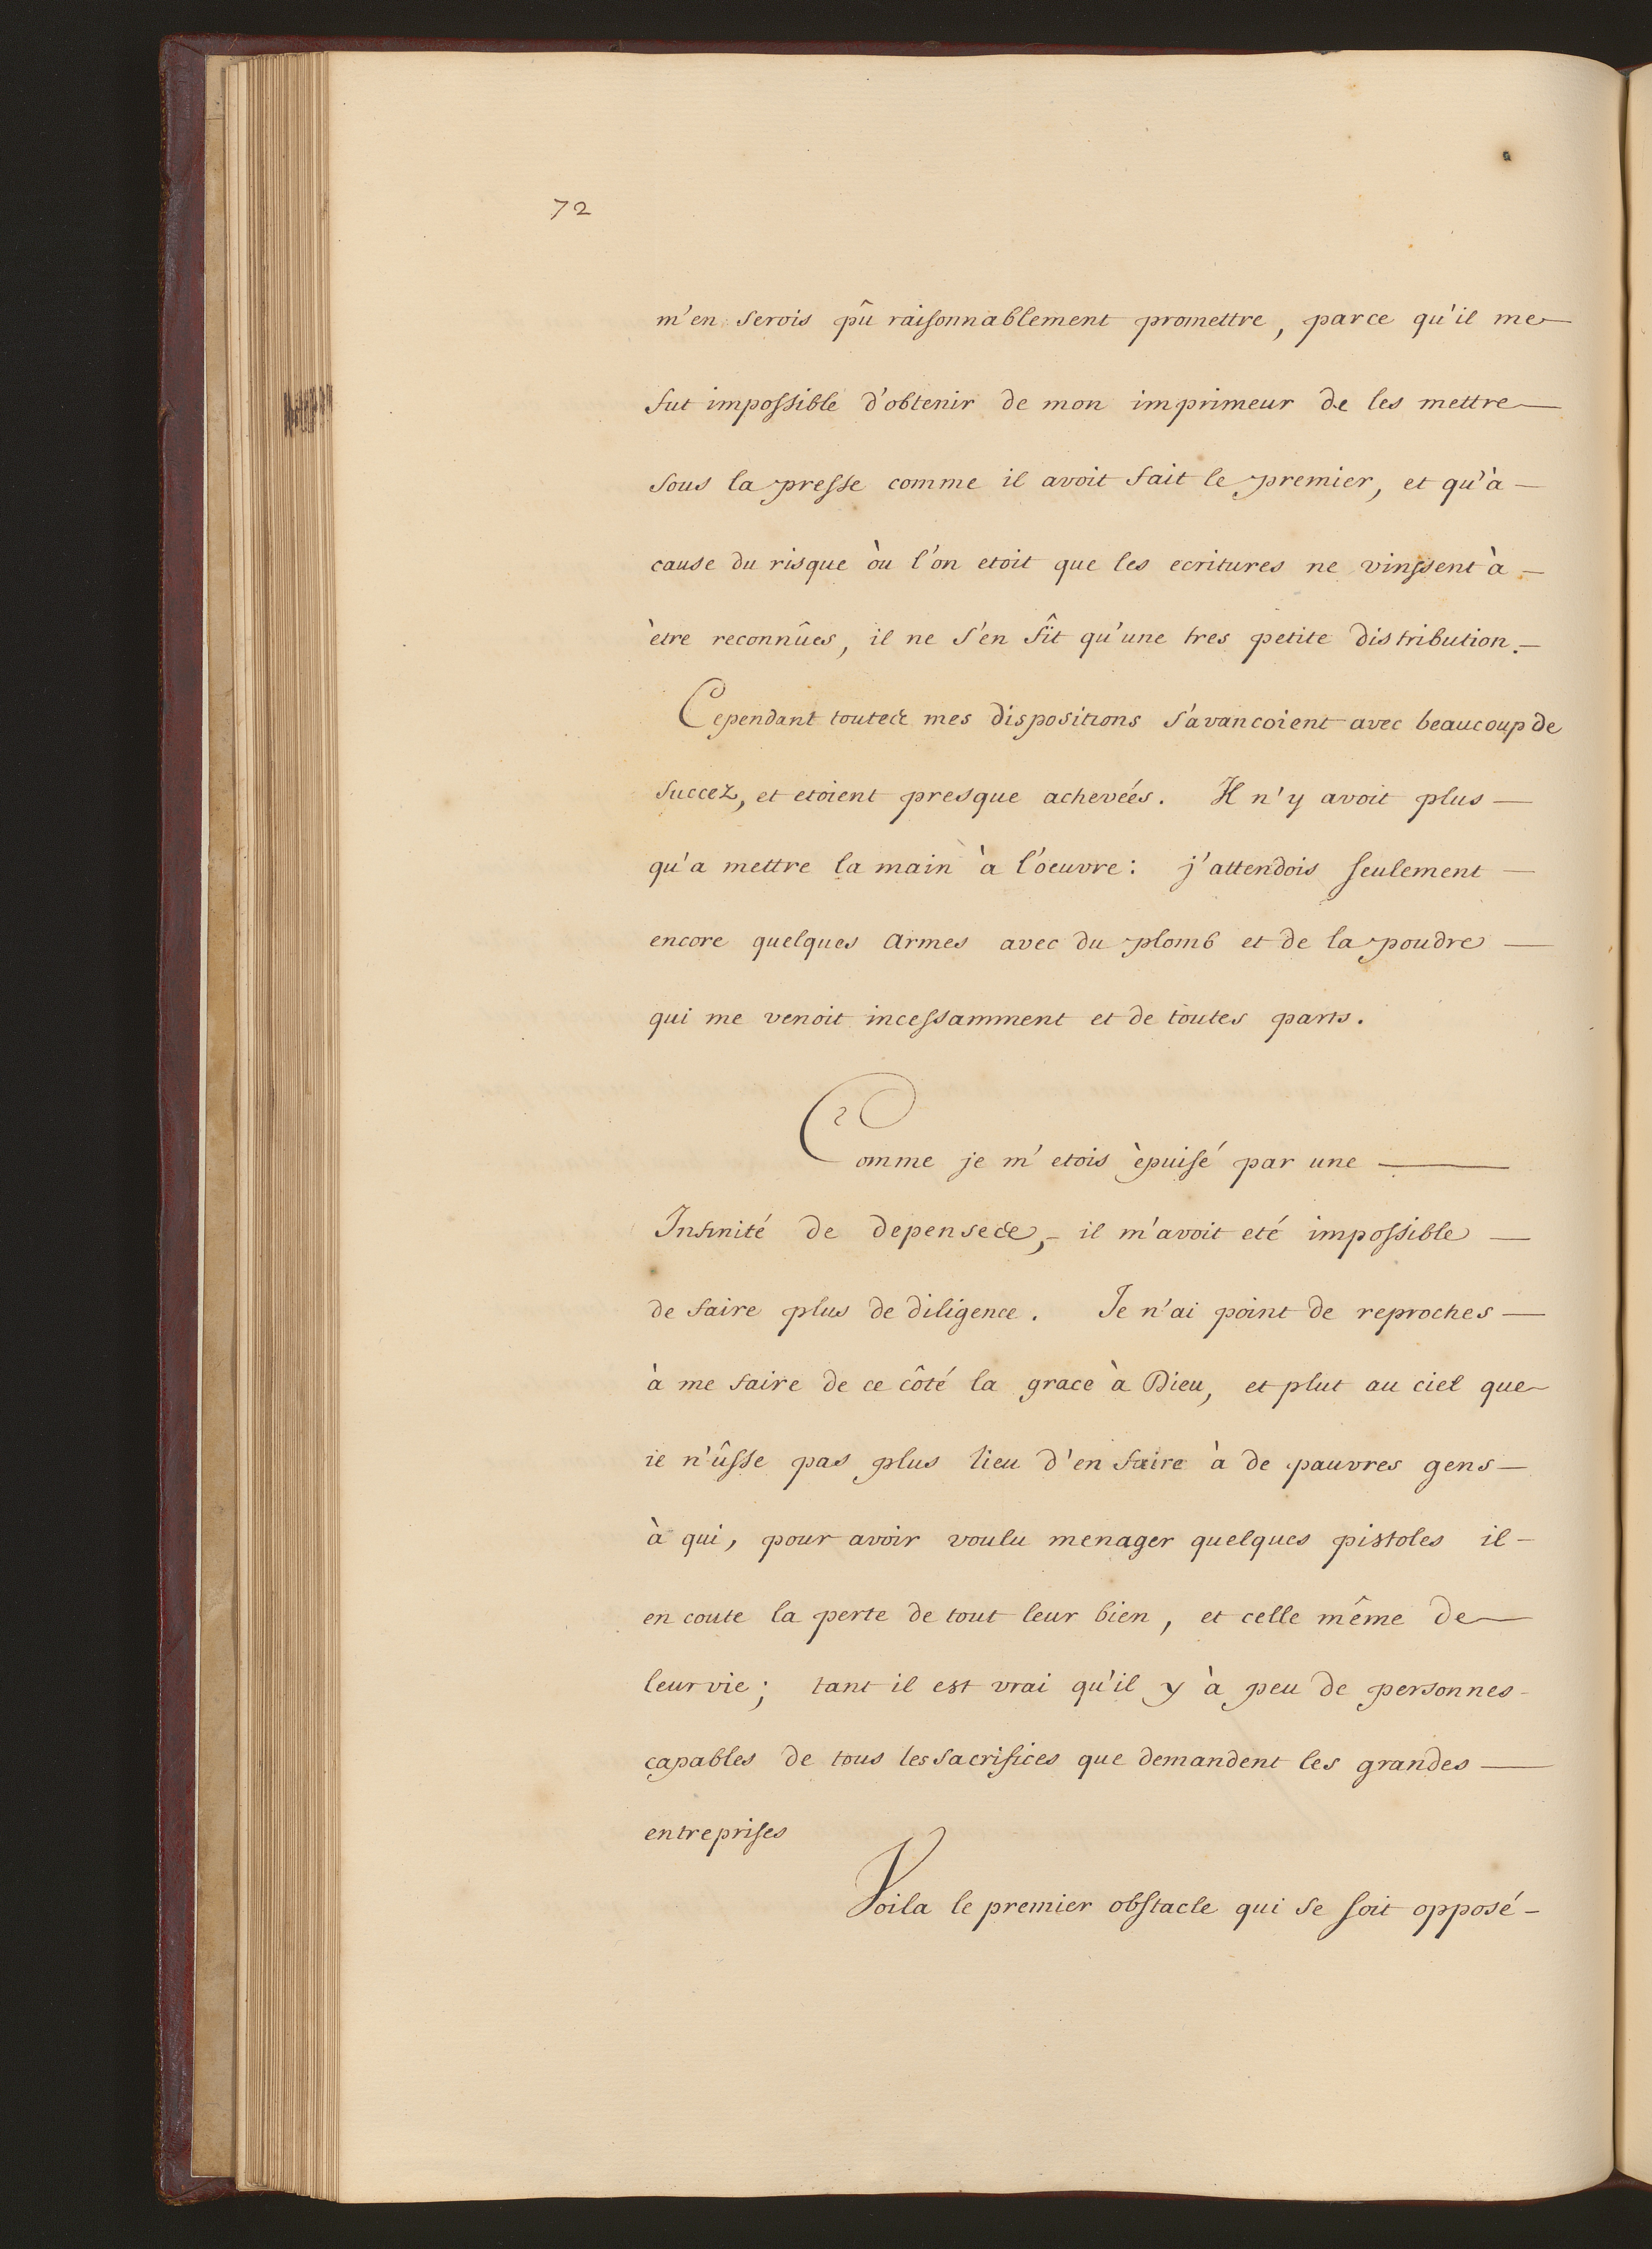 72
m'en serois pû raisonnablement promettre, parce qu'il me
fut impossible d'obtenir de mon imprimeur de les mettre
sous la presse comme il avoit fait le premier, et qu'à
cause du risque òu l'on etoit que les ecritures ne vinssent à
ètre reconnûes, il ne s'en fît qu'une tres petite distribution.
Cependant toutes mes dispositions s'avancoient avec beaucoup de
succez, et etoient presque achevées. Il n'y avoit plus
qu'a mettre la main à l'oeuvre: j'attendois seulement
encore quelques armes avec du plomb et de la poudre
qui me venoit incessamment et de toutes parts.
Comme je m'etois èpuisé par une
Infinité de depenses, il m'avoit eté impossible
de faire plus de diligence. Je n'ai point de reproches
à me faire de ce côté la grace à Dieu, et plut au ciel que
ie n'ûsse pas plus lieu d'en faire à de pauvres gens
à qui, pour avoir voulu menager quelques pistoles il
en coute la perte de tout leur bien, et celle même de
leur vie; tant il est vrai qu'il y à peu de personnes
capables de tous les sacrifices que demandent les grandes
entreprises
Voila le premier obstacle qui se soit opposé